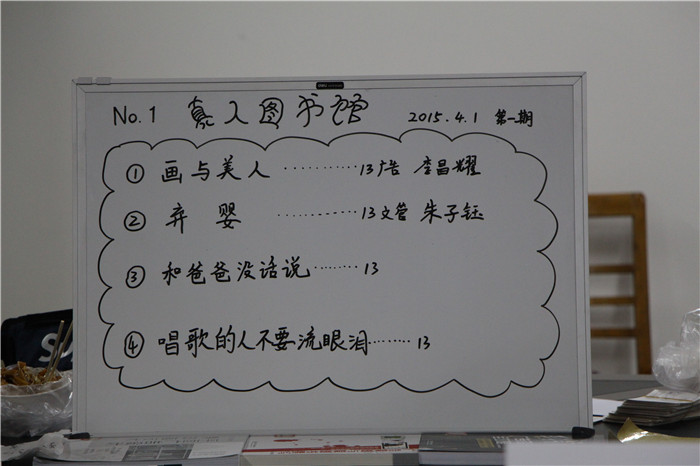 No.1 真人图书馆 2015.4.1 第一期
① 画与美人 ·········· 13广告 李昌耀
② 弃婴 ·········· 13文管 朱子钰
③ 和爸爸没话说 ······· 13
④ 唱歌的人不要流眼泪 ······· 13